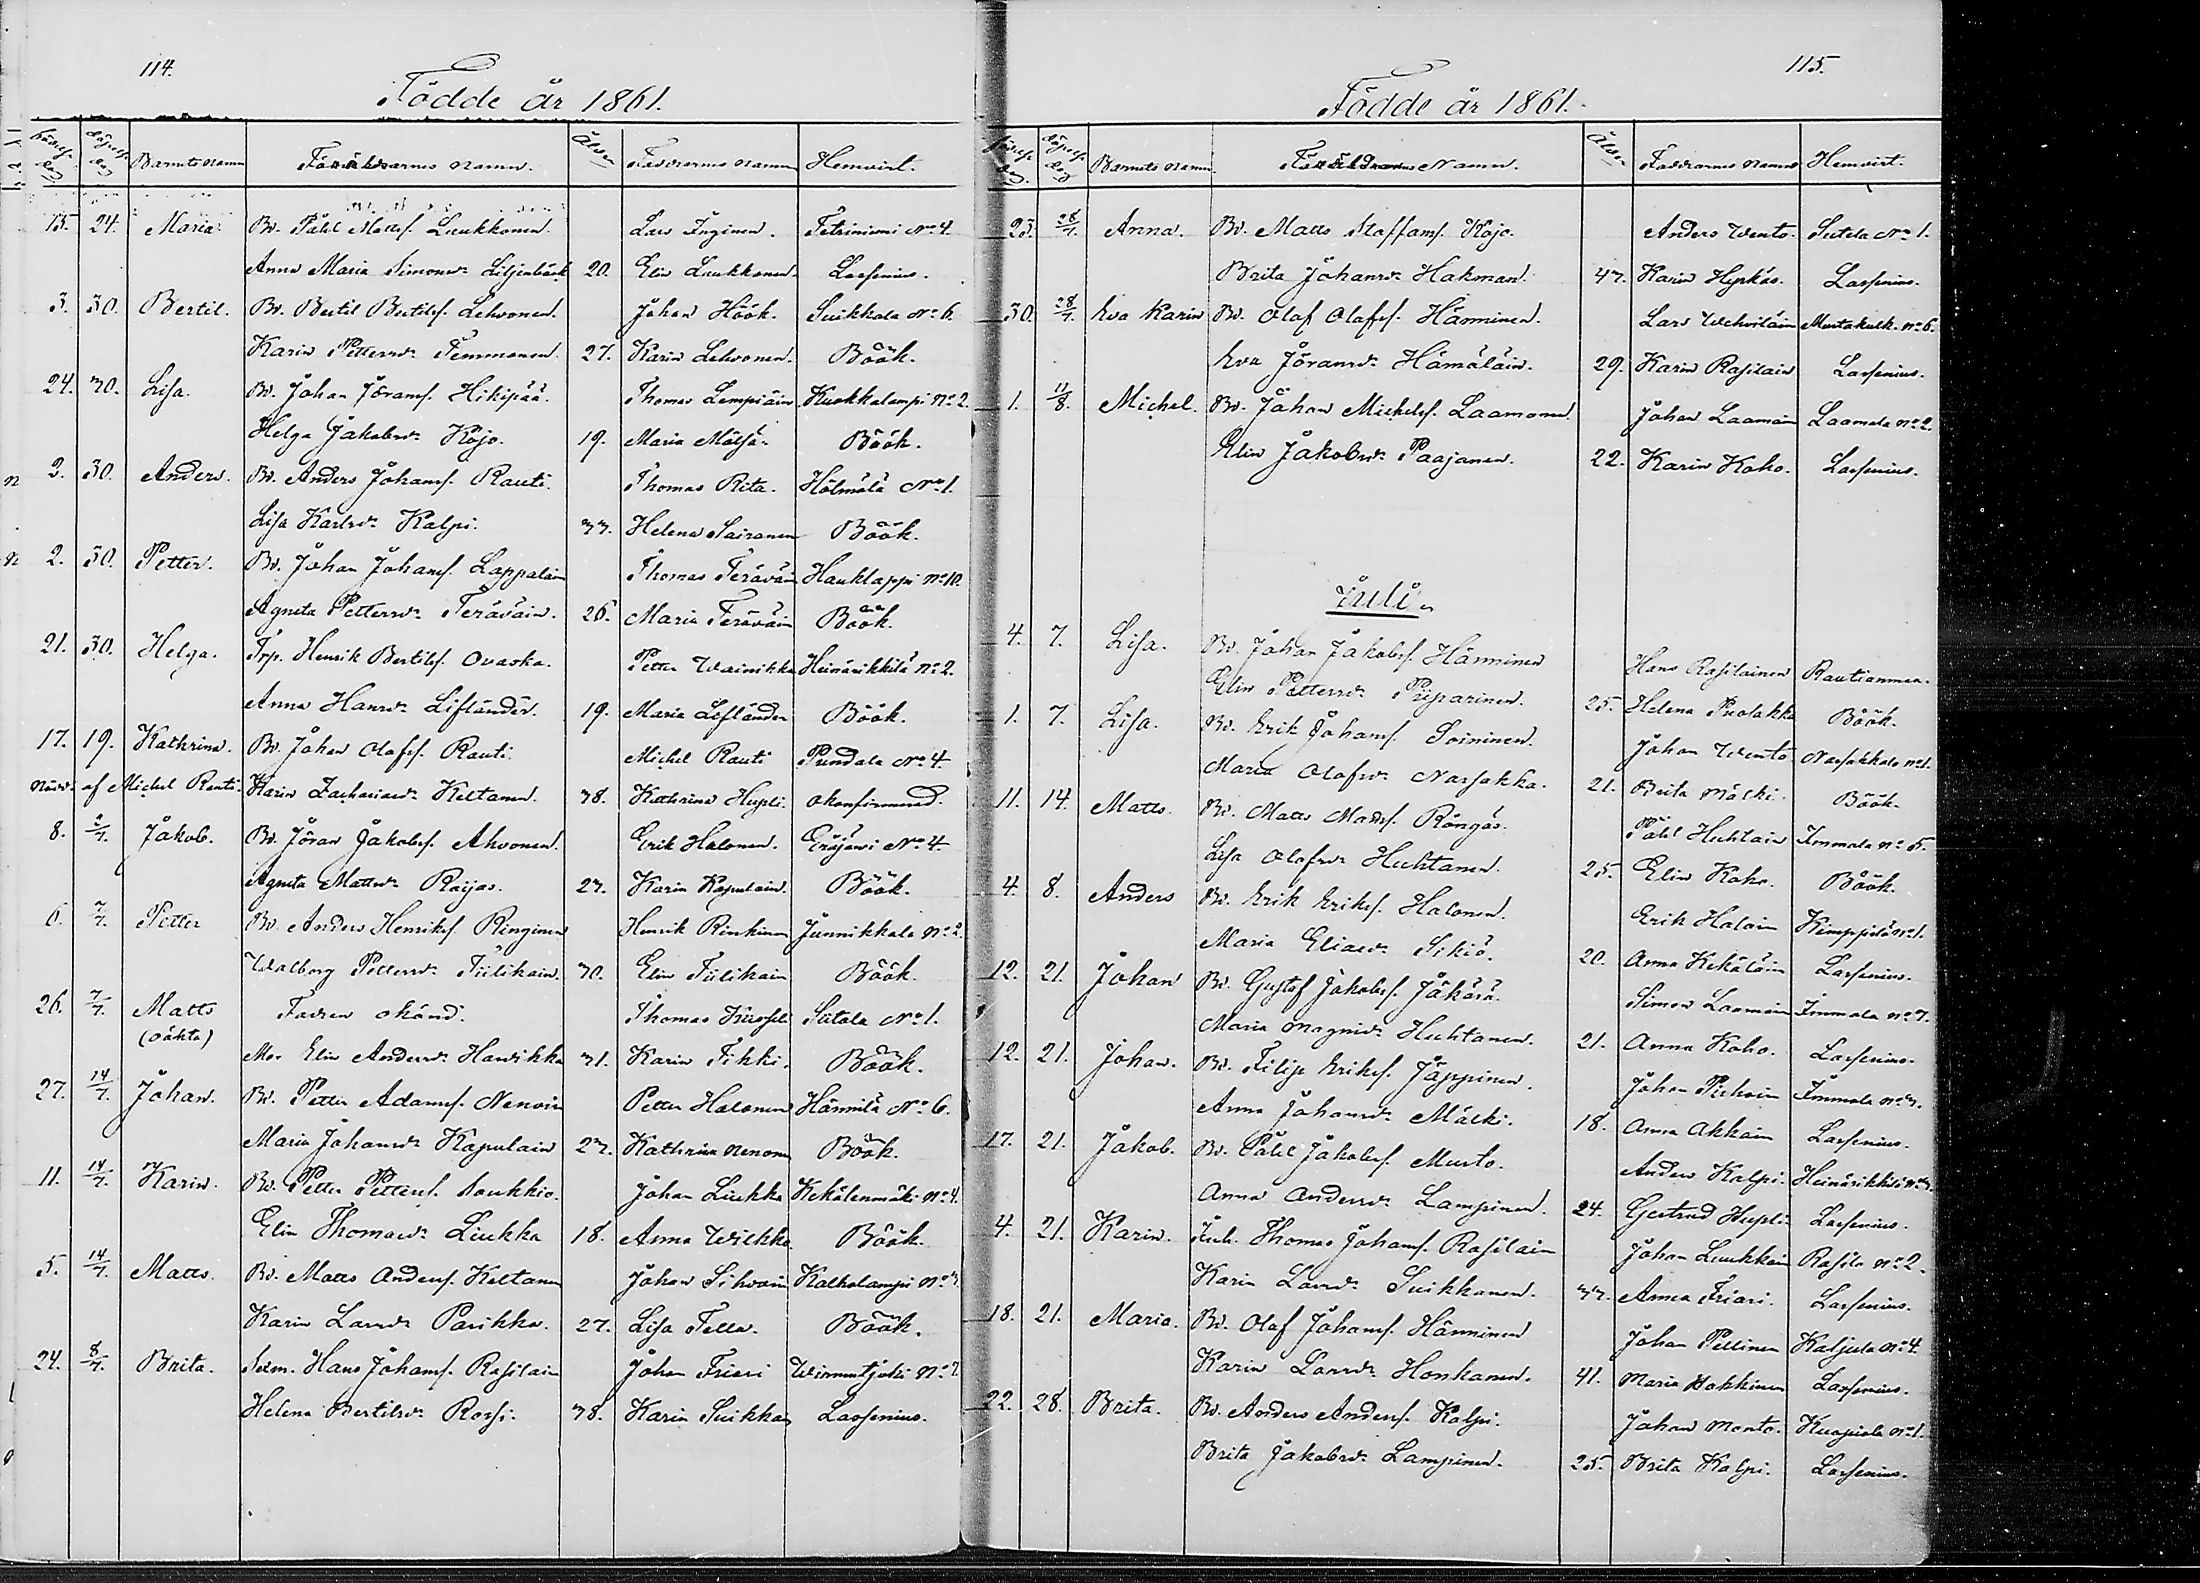 114.
Födde år 1861.
födelse dag döpelse dag Barnets namn Föräldrarnes namn. Ålder Faddrarnes namn Hemvist.
15. 24. Maria. Bd. Påhl Mattsf. Luukkonen. Lars Inginen. Tetriniemi No 4.
Anna Maria Simonsdr Liljenbäck 20. Elin Luukkonen. Lassenius.
3. 30. Bertil. Bd. Bertil Bertilsf. Lehvonen. Johan Höök. Suikkala No 6.
Karin Pettersdr Temmonen. 27. Karin Lehvonen. Böök.
24. 30. Lisa. Bd. Johan Jöransf. Hikipää. Thomas Lempiäin Kuokkalampi No 2.
Helga Jakobsdr Kojo. 19. Maria Mälsä. Böök.
2. 30. Anders. Bd. Anders Johansf. Rauti. Thomas Rita. Hölmölä No 1.
Lisa Karlsdr Kalpi. 33. Helena Sairanen Böök.
2. 30. Petter. Bd. Johan Johansf. Lappalain Thomas Teräväin Hauklappi No 10.
Agneta Pettersdr Teräväin. 26. Maria Teräväin Böök.
21. 30. Helga. Trp. Henrik Bertilsf. Ovaska. Petter Wainikka Heinärikkilä No 2.
Anna Hansdr Lifländer. 19. Maria Lifländer Böök.
17. 19. Kathrina. Bd. Johan Olafsf. Rauti. Michel Rauti Pundala No 4.
af Michel Rauti. Karin Zachariasdr Keltanen. 38. Kathrina Hupli. okonfirmerad.
8. 2/7. Jakob. Bd. Jöran Jakobsf. Ahvonen. Erik Halonen. Eräjärvi No 4.
Agneta Mattsdr Raijas. 23. Karin Kapulain. Böök.
6. 7/7. Petter Bd. Anders Henriksf. Ringinen Henrik Rinkinen Junnikkala No 2.
Walborg Pettersdr Tiilikain. 30. Elin Tiilikain Böök.
26. 7/7. Matts Fadren okänd. Thomas Sutela No 1.
(oäkta)
Mor Elin Andersdr Haurikka 31. Karin Tikki. Böök.
27. 14/7. Johan. Bd. Petter Adamsf. Nenoin Petter Halonen Hännilä No 6.
Maria Johansdr Kapulain 23. Kathrina Nenonen Böök.
11. 14/7. Karin. Bd. Petter Pettersf. Soukkio. Johan Liukka Kekälenmäki No 4.
Elin Thomasdr Liukka 18. Anna Wilkka Böök.
5. 14/7. Matts. Bd. Matts Andersf. Keltanen Johan Sihvoin Kalkolampi No 3.
Karin Larsdr Parikka. 27. Lisa Tella. Böök.
24. 8/7. Brita. Hans Johansf. Rasilain Johan Friari Wirmutjoki No
Helena Bertilsdr Rossi. 38. Karin Suikkan Lassenius.
115.
Födde år 1861.
födelse dag döpelse dag Barnets namn. Föräldrarnes Namn. Ålder Faddrarnes namn Hemvist.
23. 28/7. Anna. Bd. Matts Staffansf. Kojo. Anders Wento. Sutela No 1.
Brita Johansdr Hakman. 43. Karin Hyrkäs. Lassenius.
30. 28/7. Eva Karin Bd. Olof Olafsf. Hänninen. Lars Wehviläin Mustakulk. No 6.
Eva Jöransdr Hämäläin. 29. Karin Rasilain Lassenius.
1. 11/8. Michel. Bd. Johan Michelsf. Laamanen Johan Laamain Laamala No 2.
Elin Jakobsdr Paajanen. 22. Karin Koho. Lassenius.
Juli.
4. 7. Lisa. Bd. Johan Jakobsf. Hänninen Hans Rasilainen Rautianmaa.
Elin Pettersdr Piiparinen. 25. Helena Puolakka Böök.
1. 7. Lisa. Bd. Erik Johansf. Soininen. Johan Wento Narsakkala No 1.
Maria Olafsdr Narsakka. 21. Brita Mälki. Böök.
11. 14. Matts. Bd. Matts Mattsf. Röngäs. Påhl Huhtain Immala No 5.
Lisa Olofsdr Huhtanen. 25. Elin Koho. Böök.
4. 8. Anders Bd. Erik Eriksf. Halonen. Erik Haloin Kimppilä No 1.
Maria Eliasdr Sikiö. 20. Anna Kekäläin Lassenius.
12. 21. Johan Bd. Gustaf Jakobsf. Jäkärä. Simon Laamain Immala No 7.
Maria Magnisdr Huhtanen. 21. Anna Koho. Lassenius.
12. 21. Johan. Bd. Filip Eriksf. Jäppinen. Johan Immala No 3.
Anna Johansdr Mälki. 18. Anna Akkain Lassenius.
17. 21. Jakob. Bd. Påhl Jakobsf. Musto. Anders Kalpi. Heinärikkilä No
Anna Andersdr Lampinen. 24. Gertrud Hupli. Lassenius.
4. 21. Karin. Inh. Thomas Johansf. Rasilain Johan Luukkain Rasila No 2.
Karin Larsdr Suikkanen. 33. Anna Friari. Lassenius.
18. 21. Maria. Bd. Olof Johansf. Hänninen Johan Pellinen Kaljula No 4.
Karin Larsdr Honkanen. 41. Maria Hakkinen Lassenius.
22. 28. Brita. Bd. Anders Andersf. Kalpi. Johan Monto. Kurpiola No 1.
Brita Jakobsdr Lampinen. 25. Brita Kalpi. Lassenius.